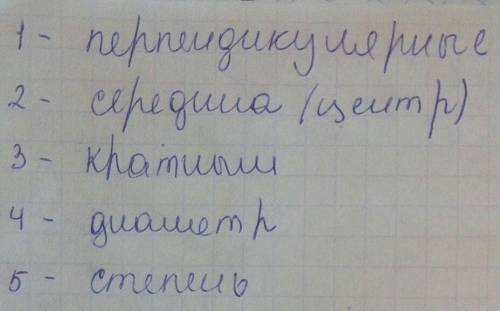 1 - перпендикулярные
2 - середина (центр)
3 - кратным
4 - диаметр
5 - степень